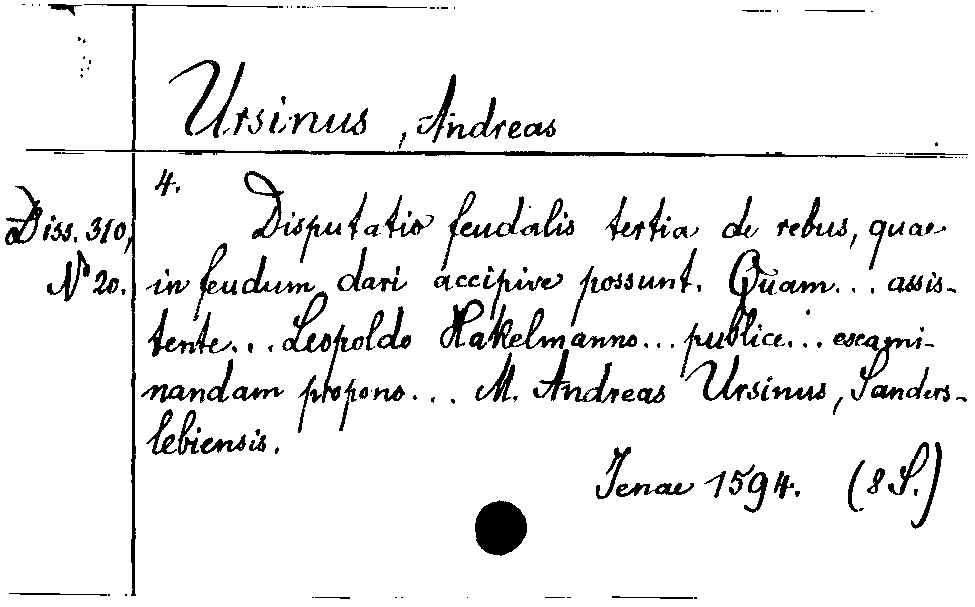 Ursinus, Andreas
4.
Diss. 310,
No 20.
Disputatio feudalis tertia de rebus, quae
in feudum dari accipive possunt. Quam... assis-
tente... Leopoldo Hakelmanno... publice... exami-
nandam propono... M. Andreas Ursinus, Sanders-
lebiensis.
Jenae 1594. (8 S.)